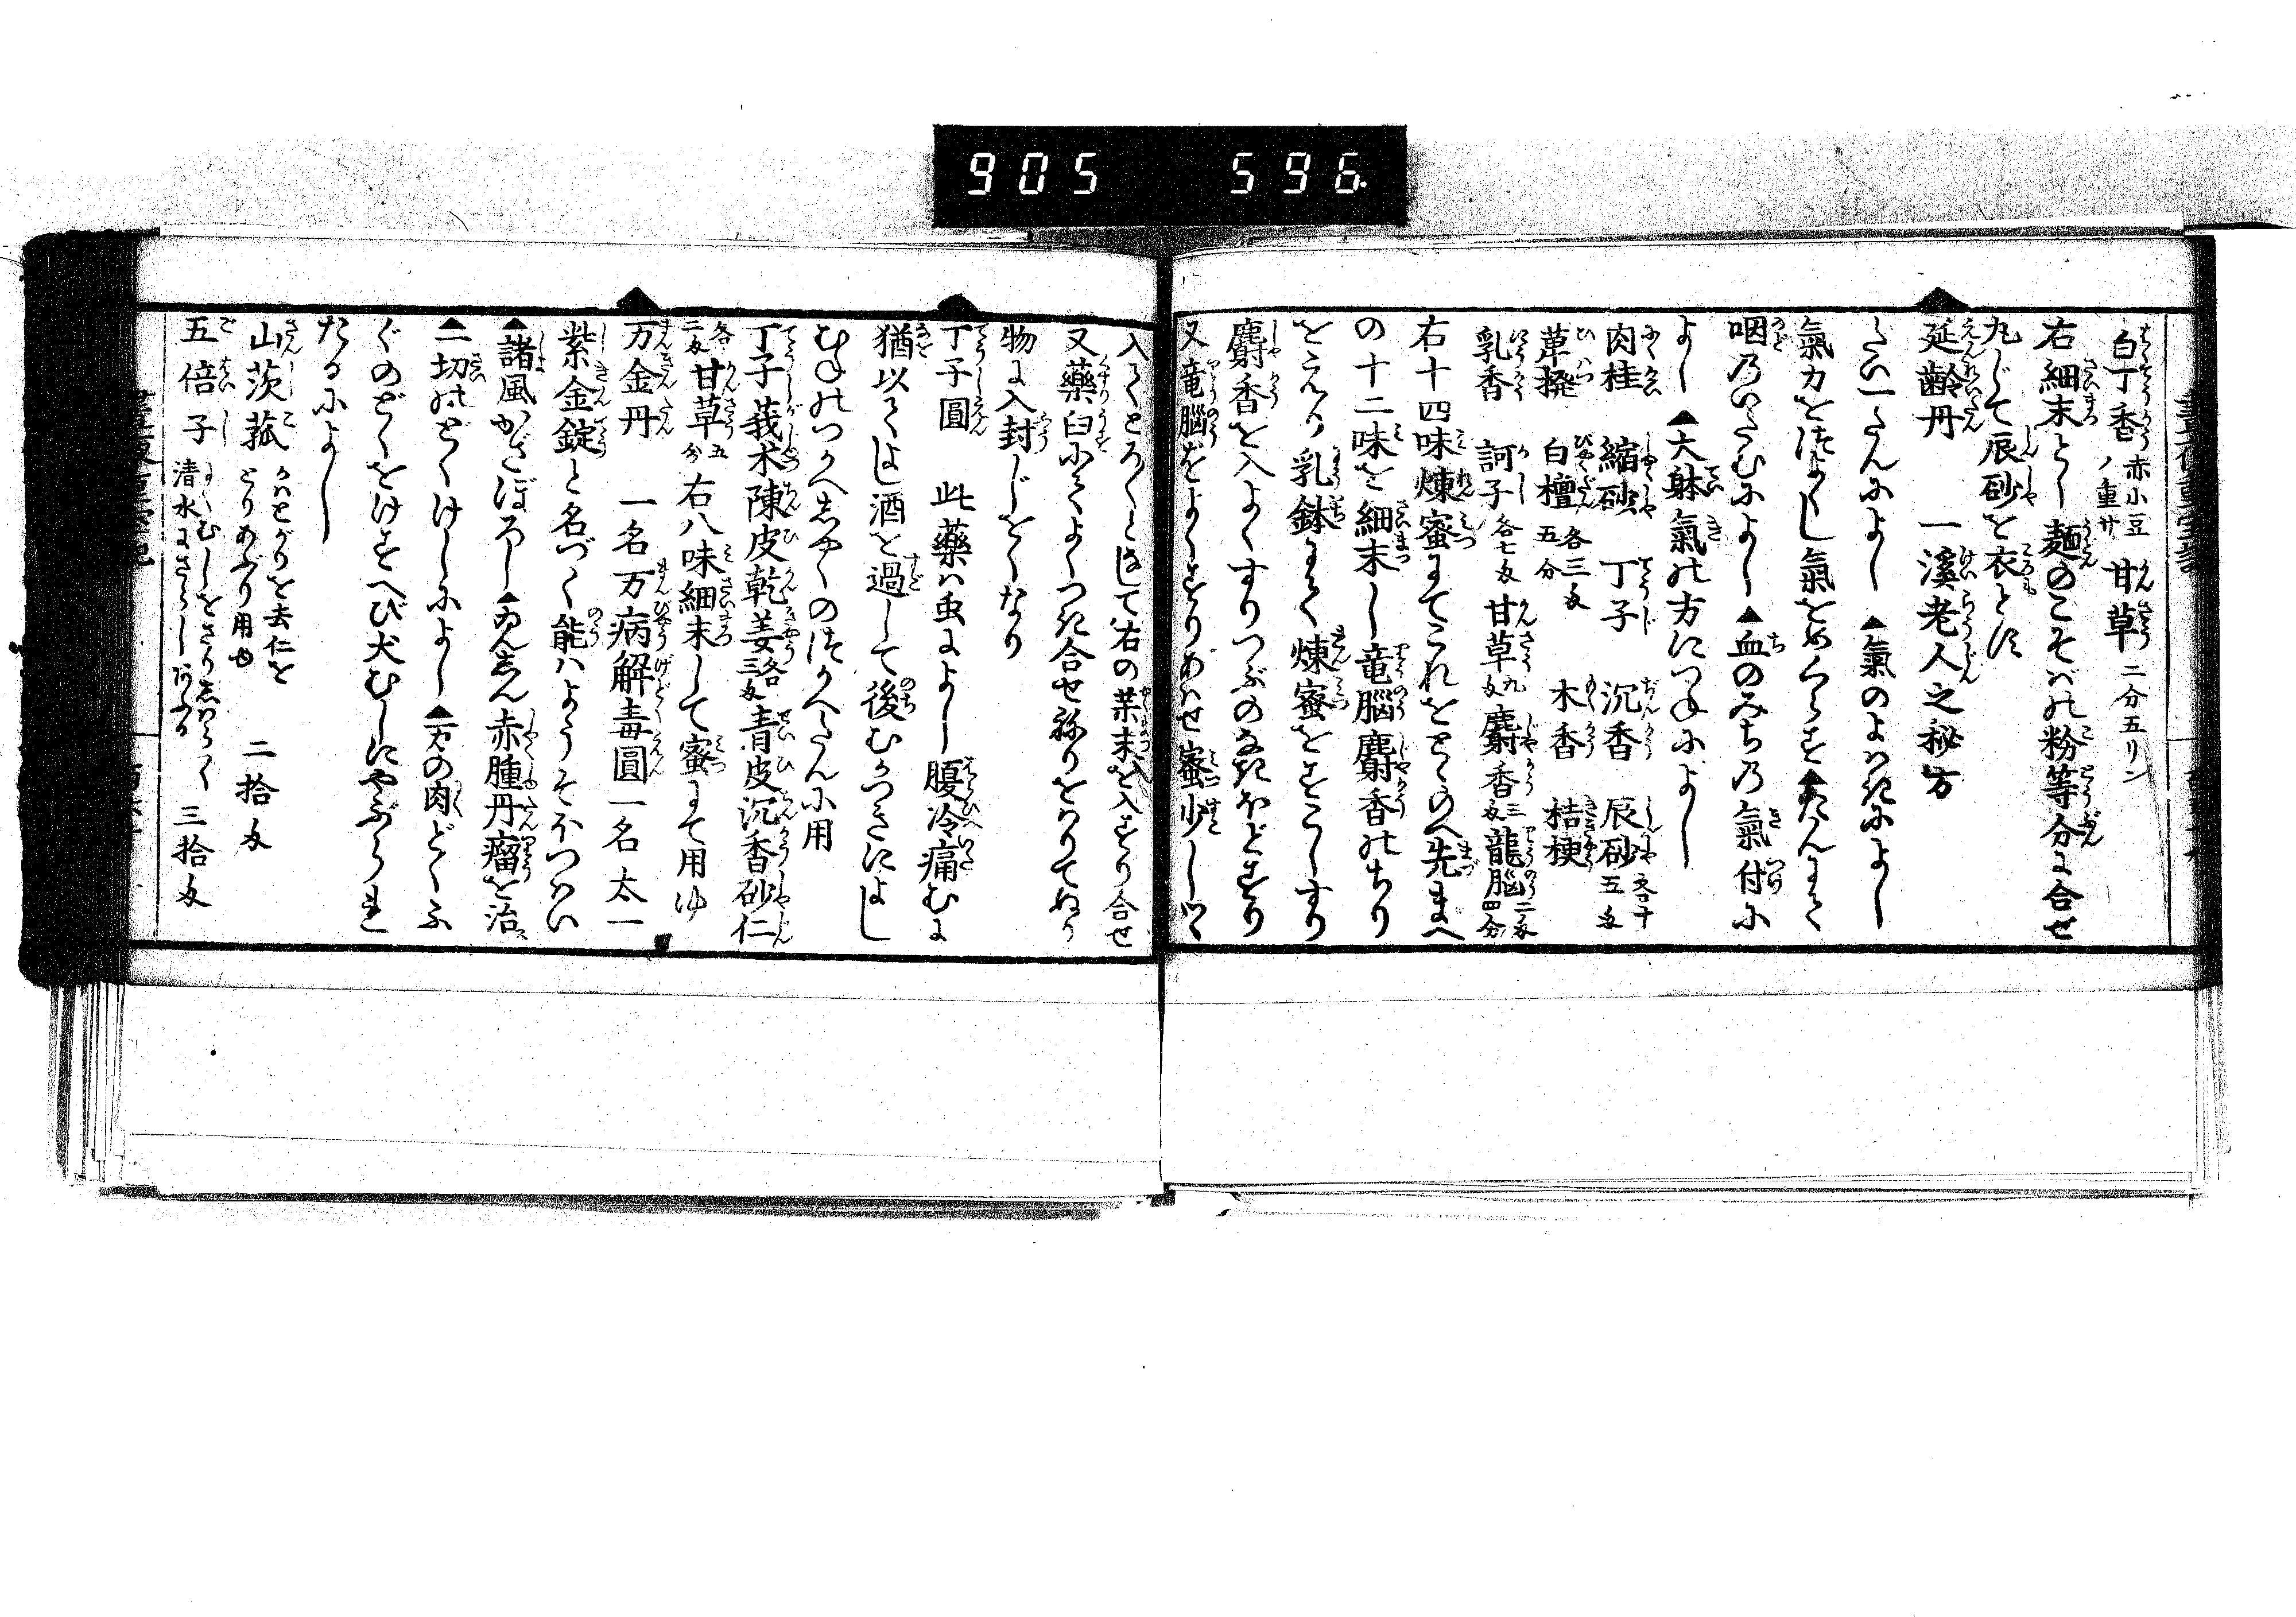 905 596.
白丁香 赤小豆ノ重サ 甘草 二分五リン
右細末とし麺のこそばの粉等分に合せ
丸じて辰砂を衣とす
延齢丹 一溪老人之秘方
たい一たんによし▲氣のよはきによし
氣力をつよくし氣をめぐらす▲たんにて
咽のいたむによし▲血のみちの氣付に
よし▲大躰氣の方につねによし
肉桂 縮砂 丁子 沉香 辰砂 各十五匁
蓽撥 白檀 各三匁五分 木香 桔梗
乳香 訶子 各七匁 甘草 九匁 麝香 三匁 龍腦 二匁四分
右十四味煉蜜にてこれをとゝのへ先まへ
の十二味を細末し竜腦麝香のちり
をえり乳鉢にて煉蜜をすこしすり
麝香を入よくすりつぶのなきほどすり
又竜腦をよくすりあはせ蜜少しづゝ
入てとろ〱として右の薬末を入すり合せ
又藥臼にてよくつき合せ祢りをはりてぬり
物に入封じをくなり
丁子圓 此藥は虫によし腹冷痛むに
猶以てよし酒を過して後むかつきによし
むねのつかへしやくのつかへたんに用
丁子莪朮陳皮乾姜各三匁青皮沉香砂仁
各二匁甘草五分右八味細末して蜜にて用ゆ
万金丹 一名万病解毒圓一名太一
紫金錠と名づく能はようそはつつはい
▲諸風かざほろし▲ゐんしん赤腫丹瘤を治ス
▲一切のどくけしによし▲一切の肉どくふ
ぐのどくをけすへび犬むしにやぶられ
たるによし
山茨菰 かはとがりを去仁をとりあぶり用ゆ 二拾匁
五倍子 清水にさらし 三拾匁